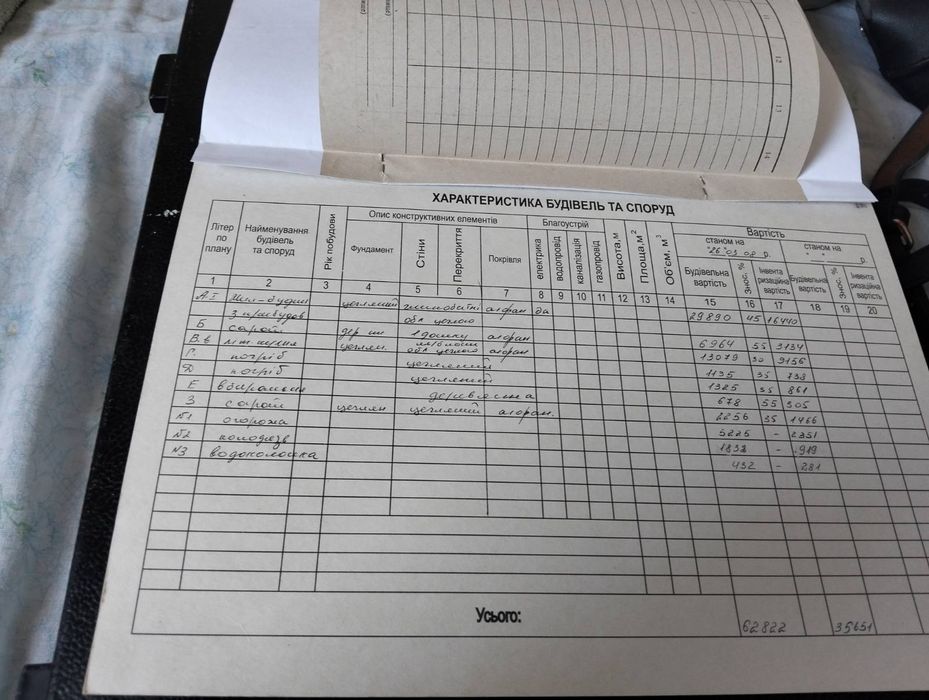 11
12
13
14
ХАРАКТЕРИСТИКА БУДІВЕЛЬ ТА СПОРУД
Літер по плану
Найменування будівель та споруд
Рік побудови
Опис конструктивних елементів
Фундамент
Стіни
Перекриття
Покрівля
Благоустрій
електрика
водопровід
каналізація
газопровід
Висота,м
Площа,м²
Об'єм, м³
Вартість
станом на "26" 03 08 р.
станом на " " р.
Будівельна вартість
Знос, %
Інвентаризаційна вартість
Будівельна вартість
Знос, %
Інвентаризаційна вартість
1 2 3 4 5 6 7 8 9 10 11 12 13 14 15 16 17 18 19 20
А.І Жил-будин цегляний шлакобетні азфан да
З прибудов обл цеглою 29890 45 16440
Б сарай дошку азфан 6964 55 3134
В.в літ кухня цеглян. обл цеглою азфан 13079 30 9156
Г. погріб цегляний 1135 35 738
Д погріб цегляний 1325 35 861
Е вбиральня деревянна 678 55 305
З сарай цеглян цегляний азфан. 2256 35 1466
№1 огорожа 5225 - 2351
№2 колодязь 1838 - 919
№3 водоколонка 432 - 281
Усього: 62822 35651